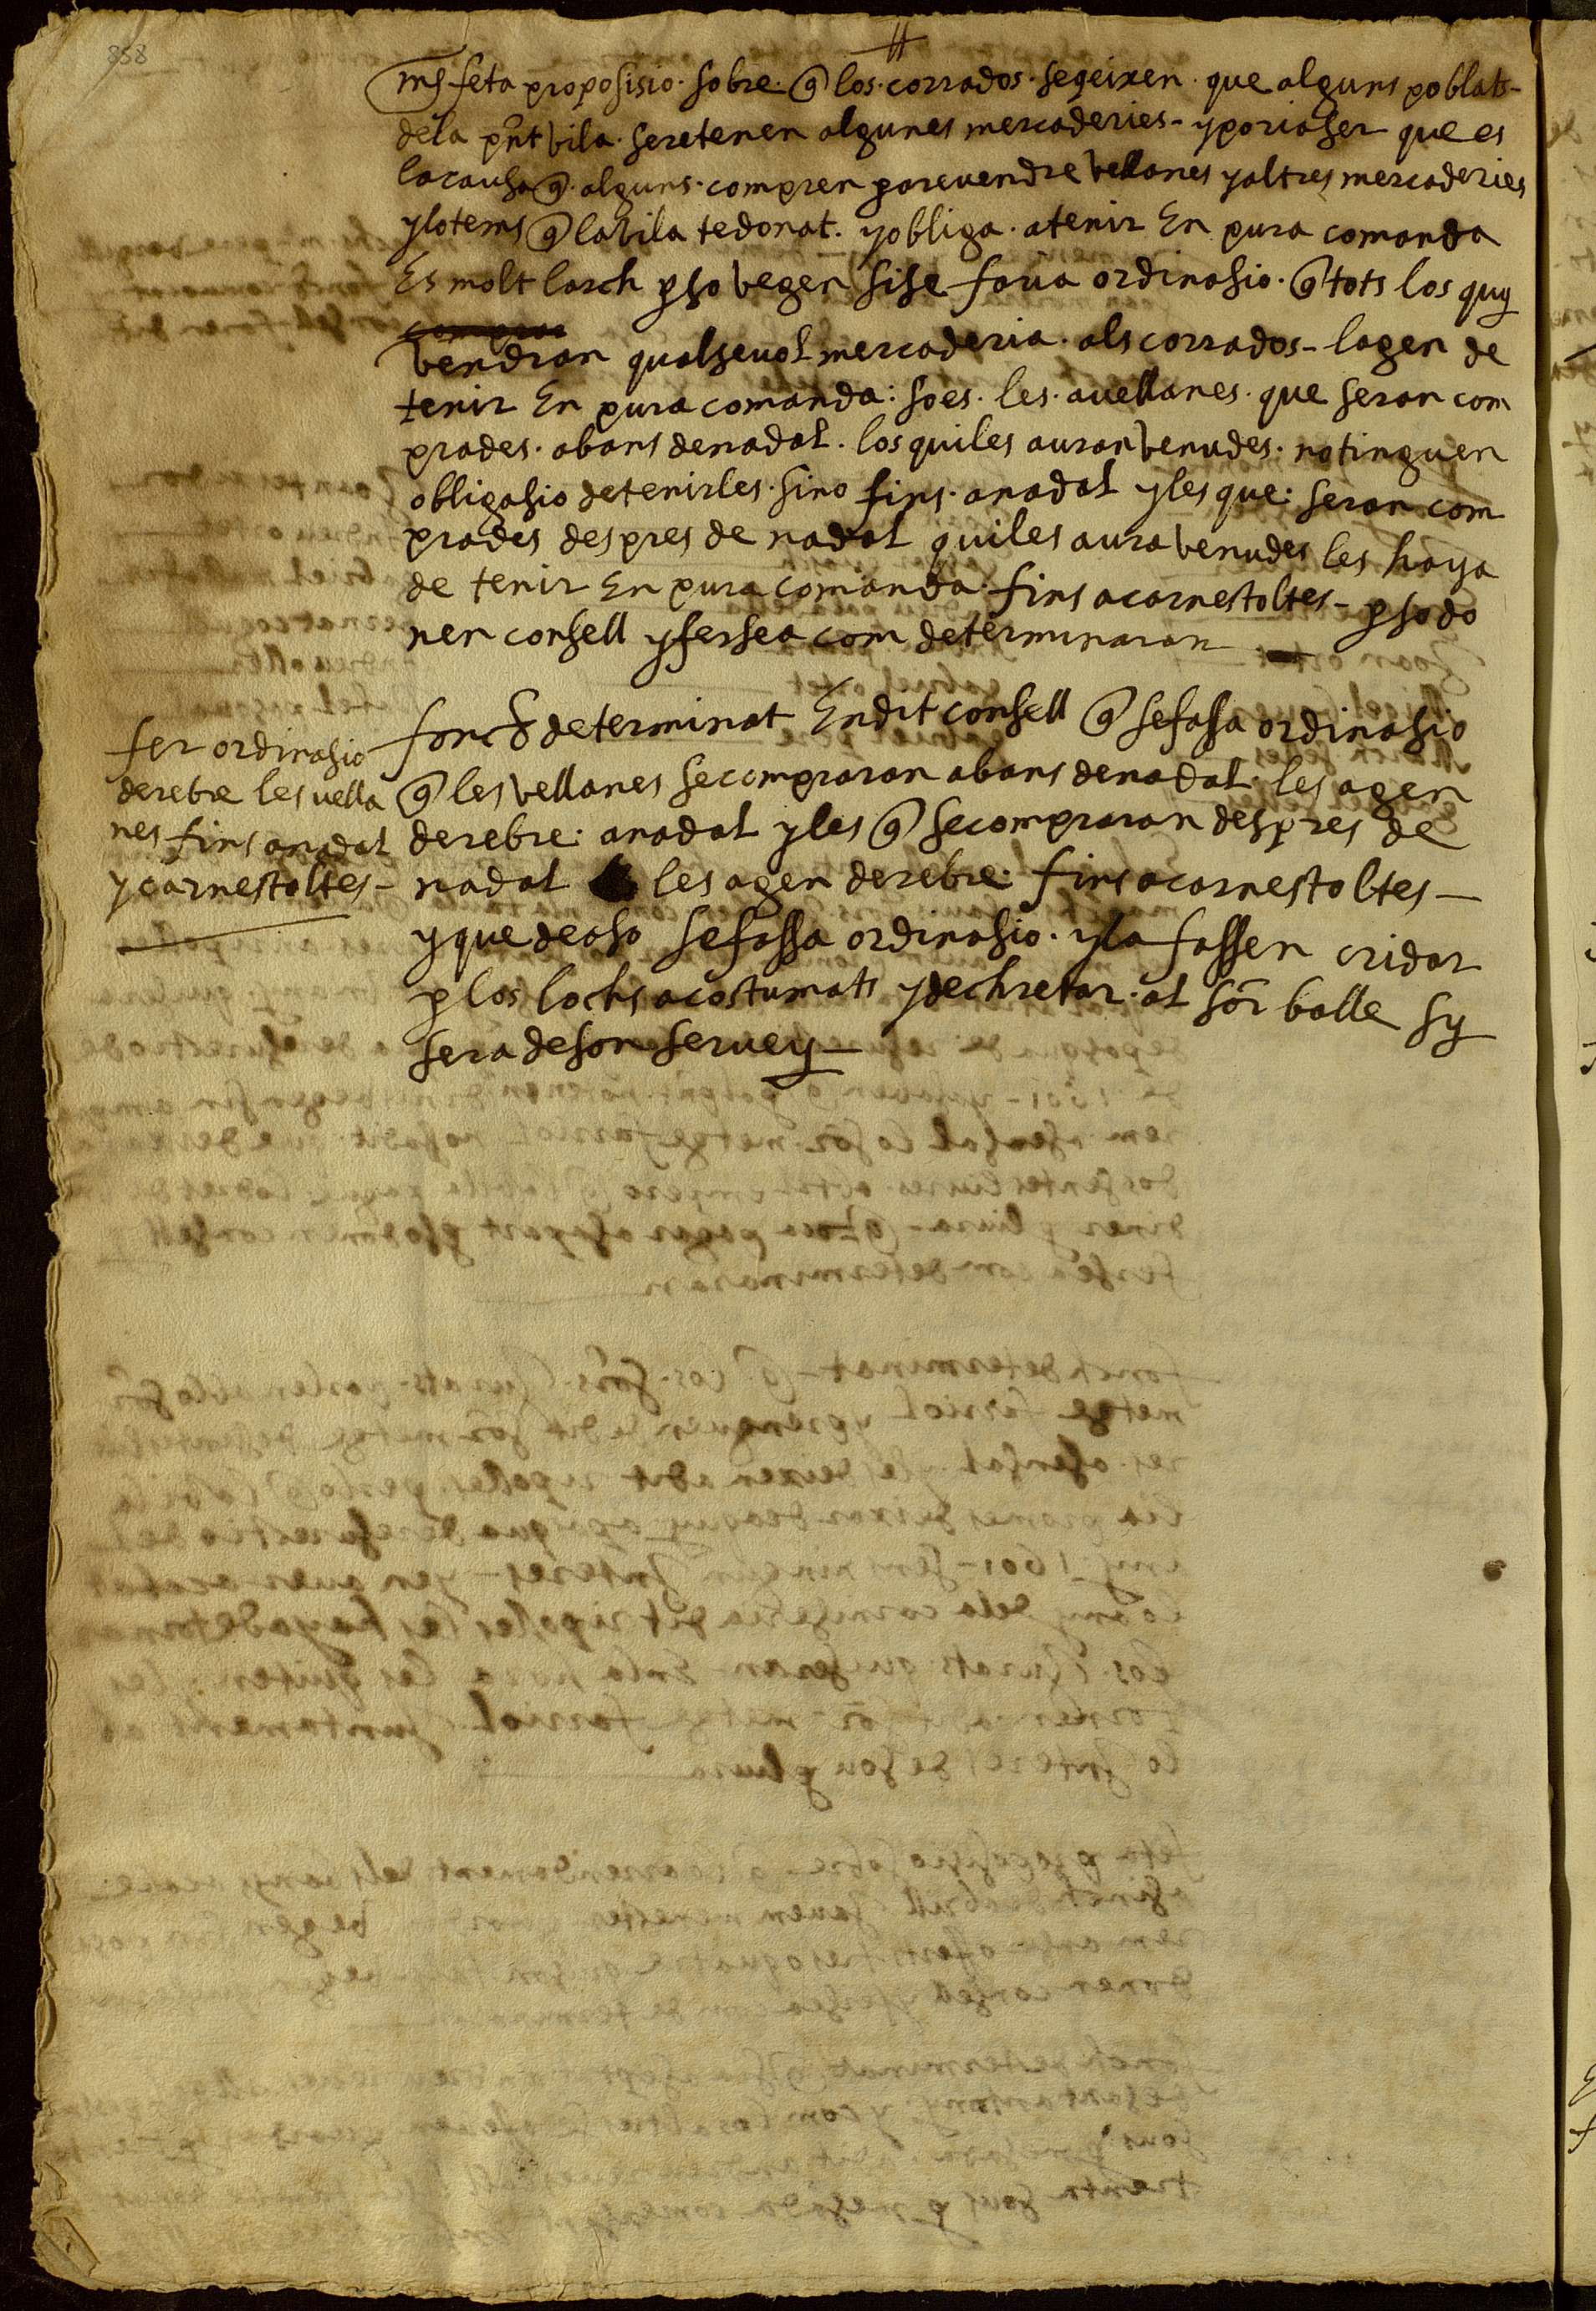 858
mes feta proposisio · sobre · q̃ los · corrados · seqeixen · que alguns poblats-
dela pn̄t vila · seretenen algunes mercaderies - yporiaser que es
lacausa q̃ · alguns · compren parevendre vellanes yaltres mercaderies
ylotems q̃ lavila tedonat · yobliga · atenir En pura comanda
Es molt larch pso vegen sise faria ordinasio · q̃ tots los quy
vendran qualsevol mercaderia · als corrados - lagen de
tenir En pura comanda : soes · les · avellanes · que seran com
prades · abans denadal · losquiles auran venudes · notinguen
obligasio detenirles · sino fins · anadal ylesque : seran com
prades despres de nadal quiles aura venudes les haya
de tenir En pura comanda · fins acarnestoltes - psodo
nen consell yfersea com determinaran
fonch determinat Endit consell q̃ sefassa ordinasio
q̃ les vellanes secompraran abans denadal · les agen
derebre : anadal yles q̃ secompraran despres de
nadal les agen derebre : fins acarnestoltes -
yquedeaso sefassa ordinasio · yla fassen cridar
p los lochs acostumats ydechretar · al sōr balle sy
sera deson servey -
fer ordinasio
derebre les vella
nes fins anadal
ycarnestoltes -